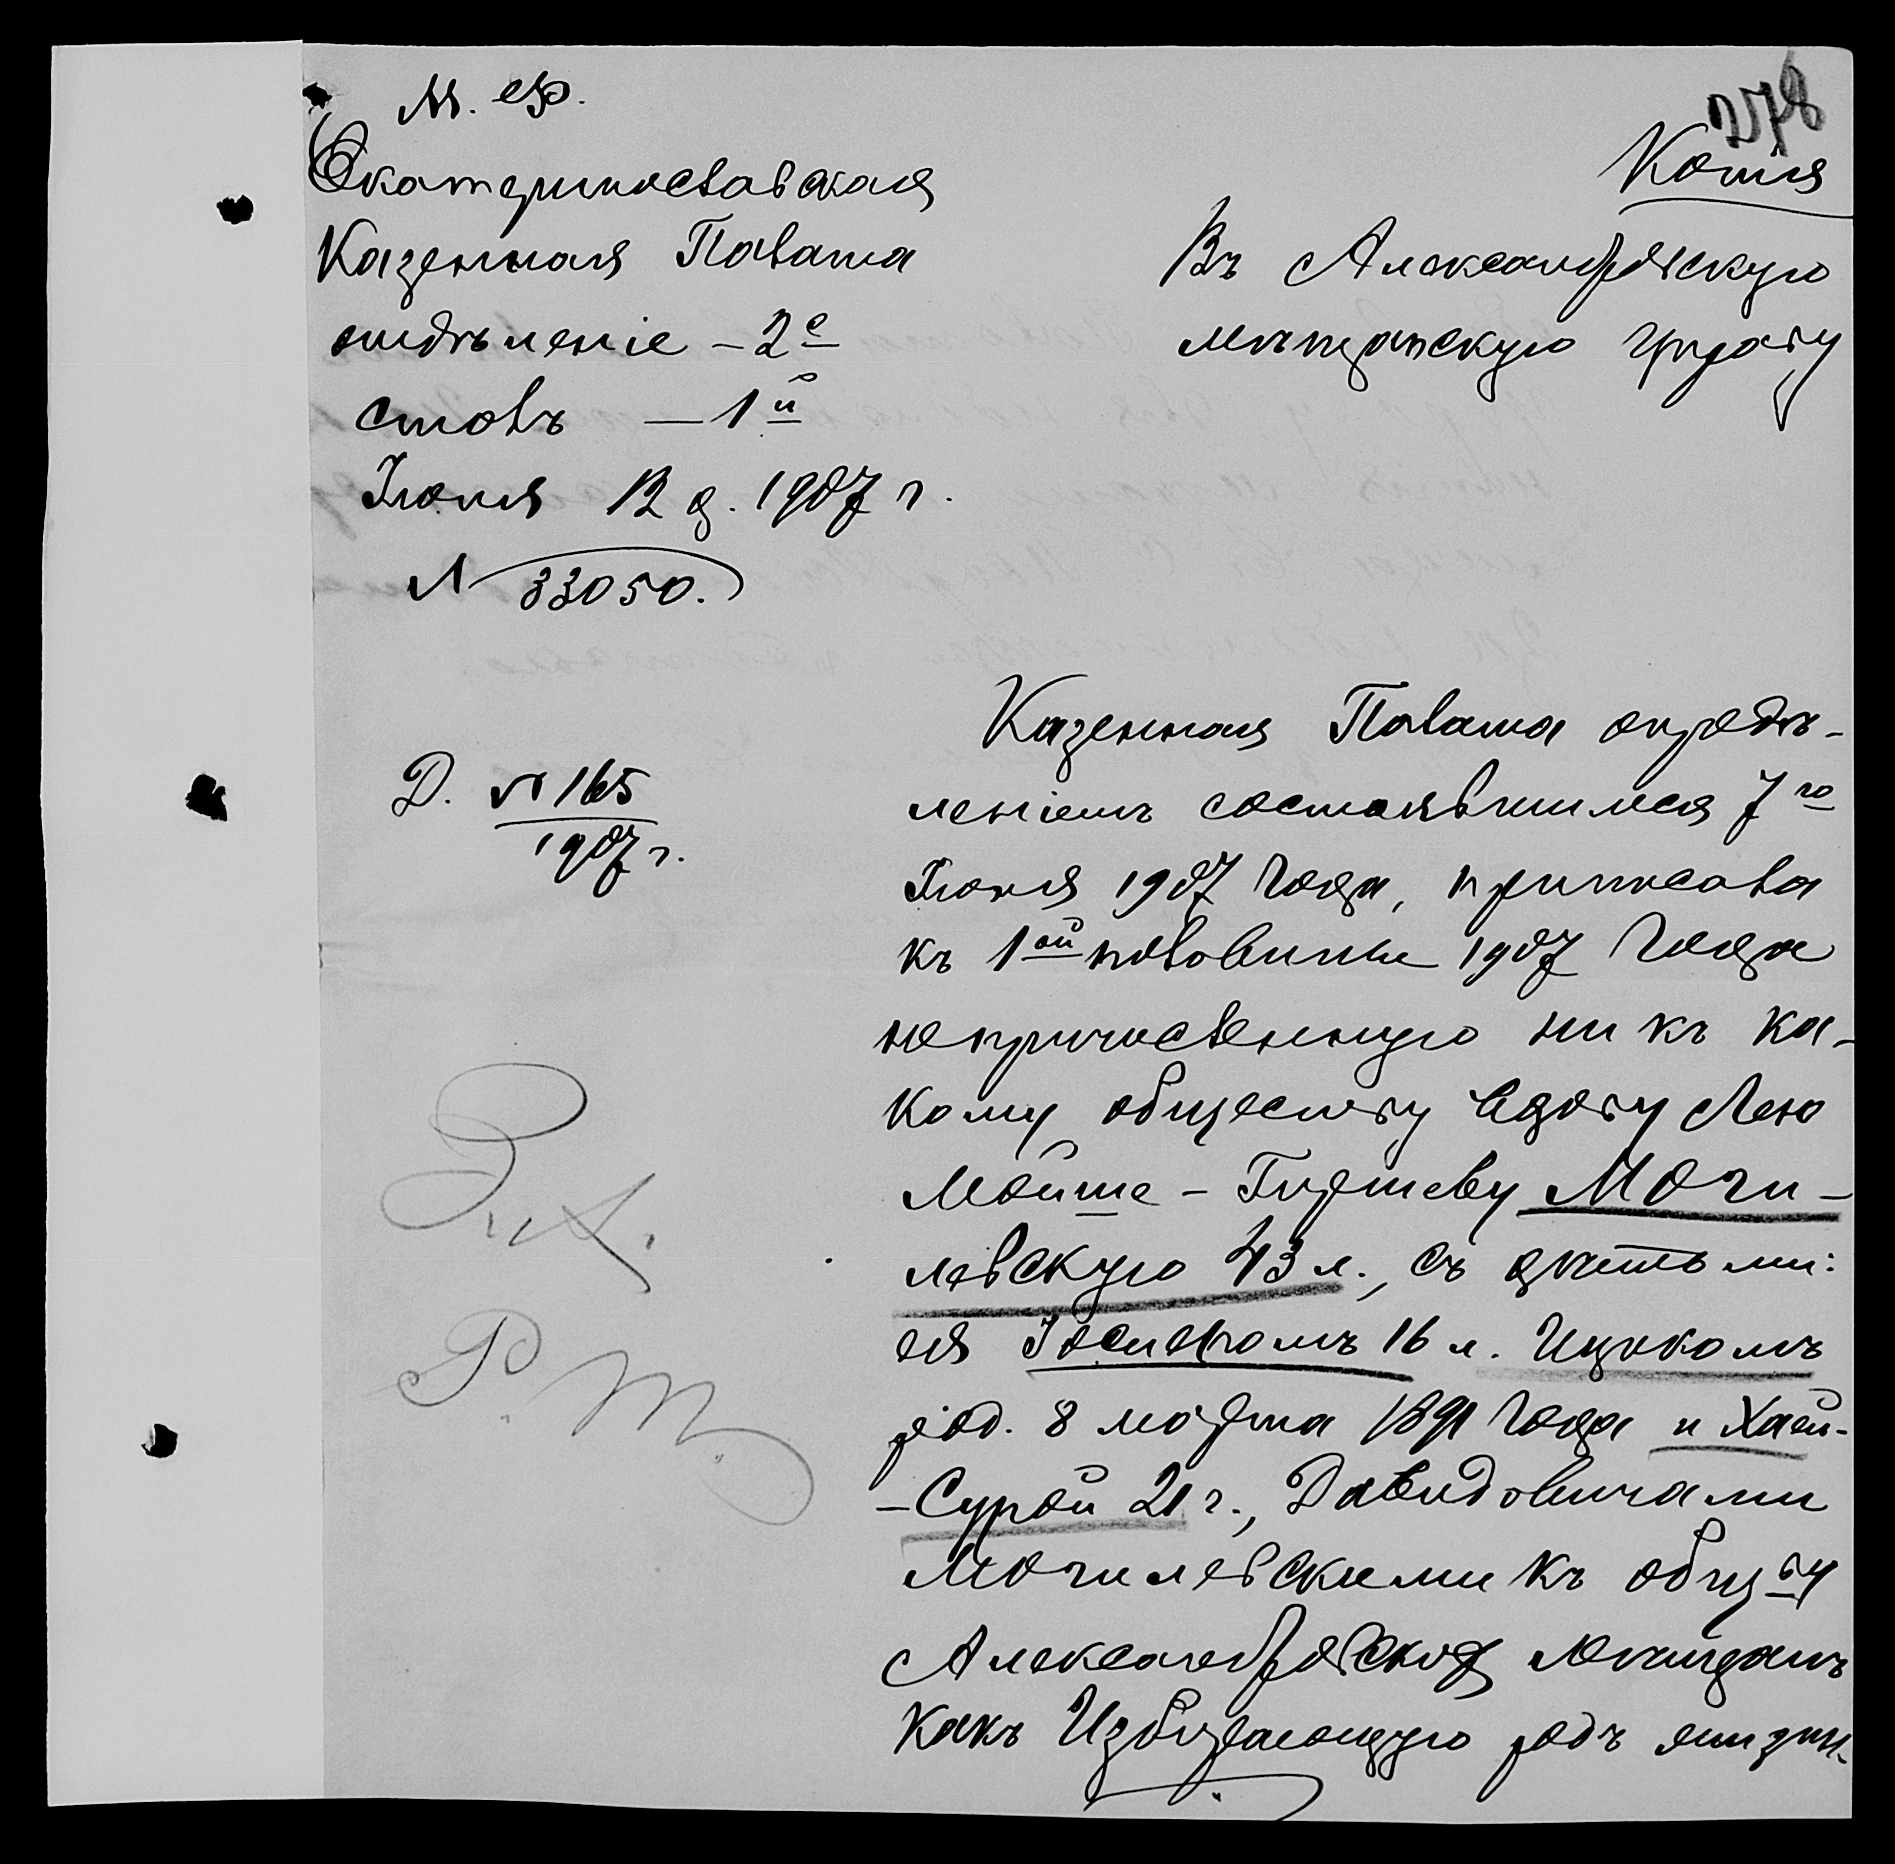 М. Ф.
278
Копія
Екатеринославская
Казенная Палата
отдѣленіе – 2е
столъ – 1й
Іюня 12 д. 1907 г.
№ 33050.
Въ Александровскую
мѣщанскую Управу
Д. № 165
1907 г.
Казенная Палата опредѣ-
леніемъ состоявшимся 7го
Іюня 1907 года, приписала
къ 1ой половинѣ 1907 года
непричисленную ни къ ка-
кому обществу вдову Лею
Мойше-Гиршеву Моги-
левскую 43 л., съ дѣтьми:
ея Іосифомъ 16 л. Ицкомъ
род. 8 марта 1891 года и Хаей-
-Сурой 21 г., Давидовичами
Могилевскими къ общву
Александровскихъ мѣщанъ
какъ Избирающую родъ жизни